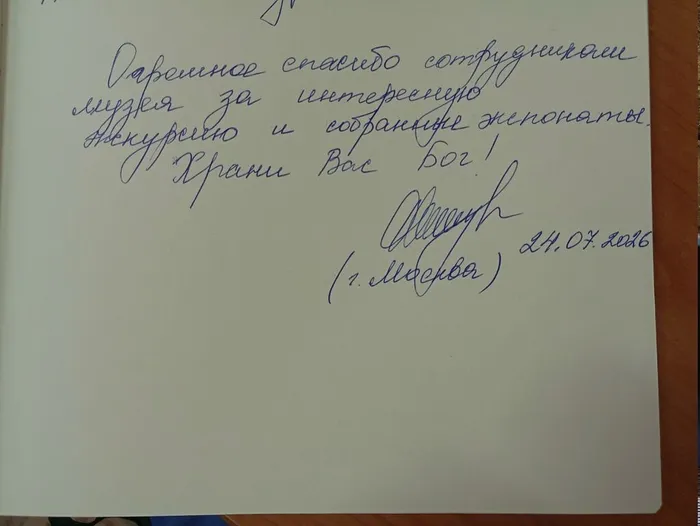 Огромное спасибо сотрудникам
музея за интересную
экскурсию и собранные экспонаты.
Храни Вас Бог!
24.07.2026
(г. Москва)